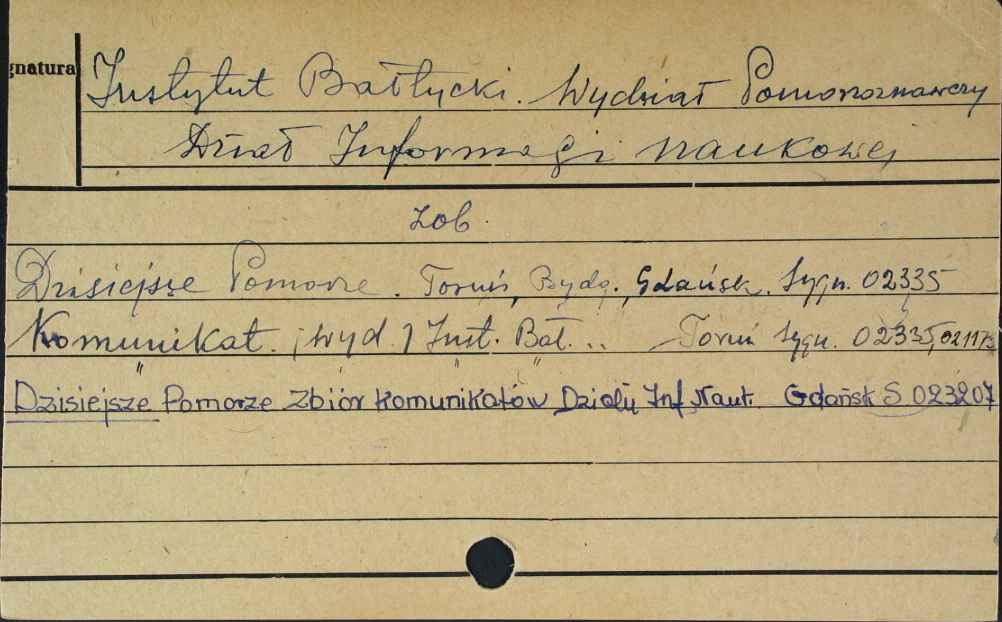 gnatura
Instytut Bałtycki. Wydział Pomorzoznawczy
Dział Informacji naukowej
zob.
Dzisiejsze Pomorze. Toruń, Bydg., Gdańsk. Sygn. 02335
Komunikat. [wyd.] Inst. Bał... Toruń Sygn. 02335,
Dzisiejsze Pomorze Zbiór komunikatów Działu Inf. Nauk. Gdańsk S 023207